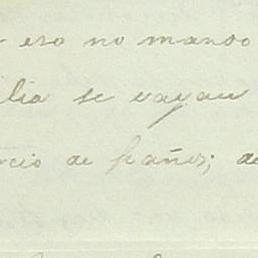 eso no mando
ilia se vayan
rcio de paños; de